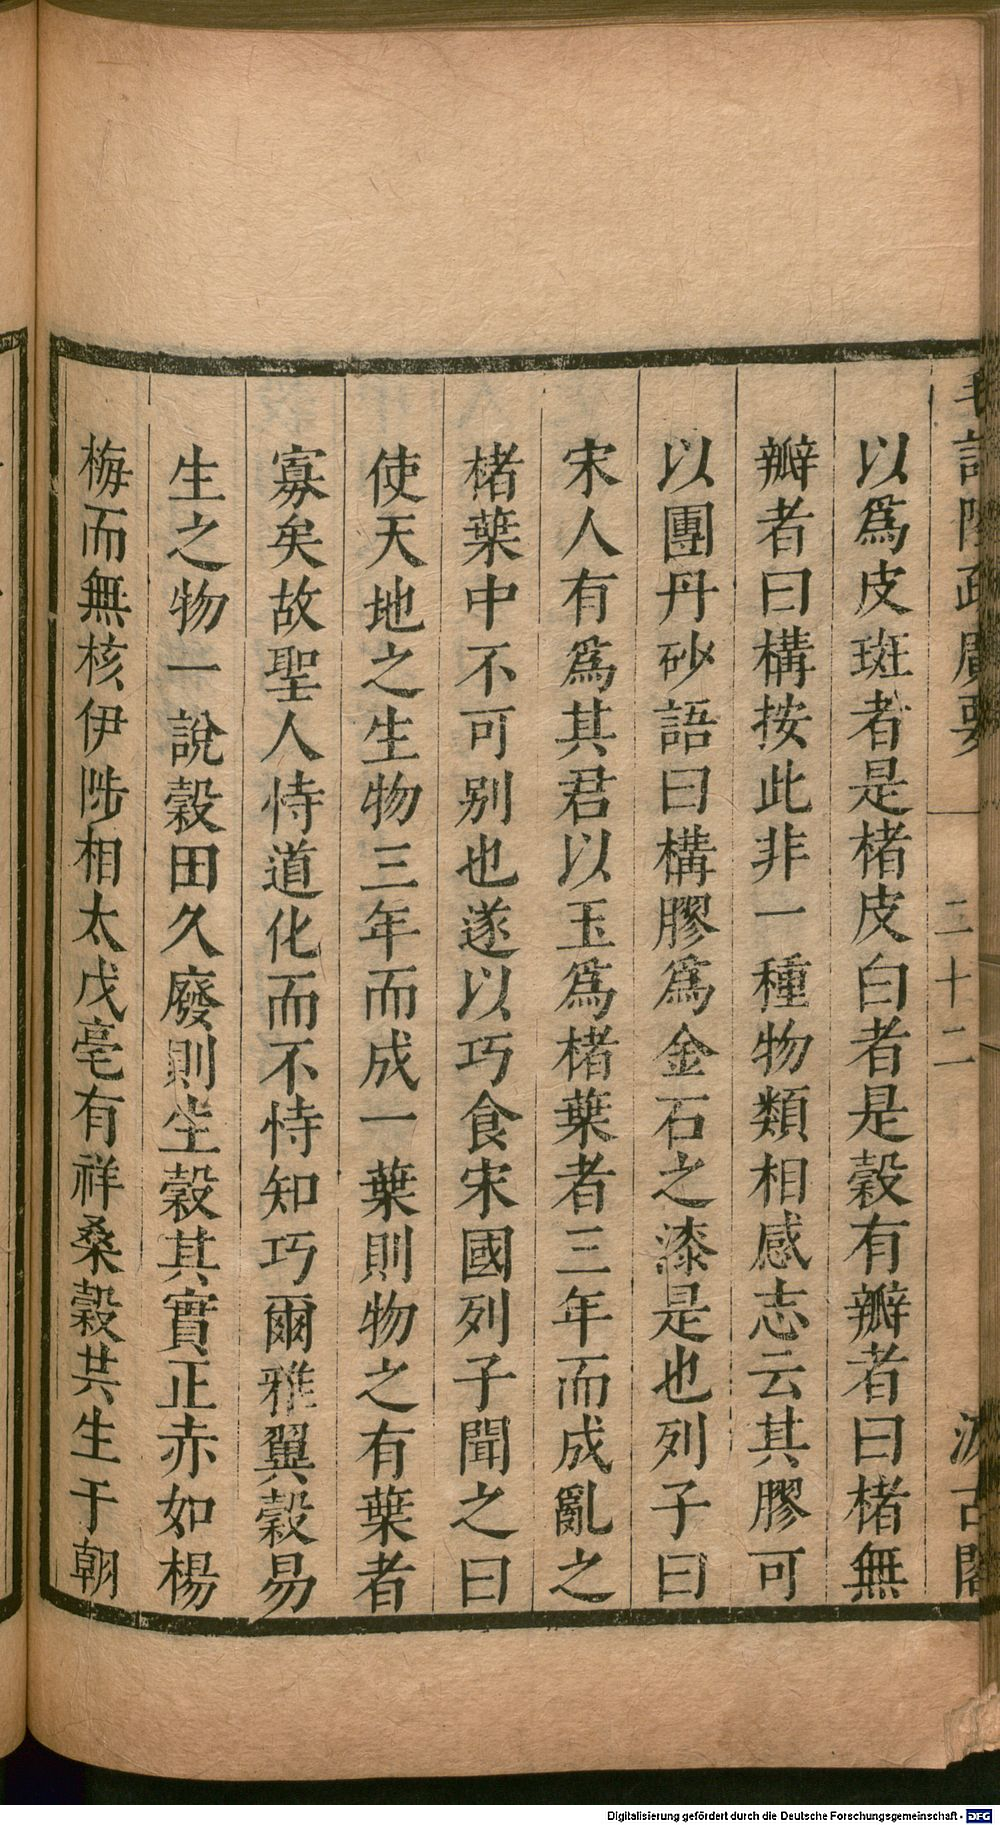 毛詩陸疏廣要 二十二 汲古閣
以爲皮斑者是楮皮白者是榖有瓣者曰楮無
瓣者曰構按此非一種物類相感志云其膠可
以團丹砂語曰構膠爲金石之漆是也列子曰
宋人有爲其君以玉爲楮葉者三年而成亂之
楮葉中不可別也遂以巧食宋國列子聞之曰
使天地之生物三年而成一葉則物之有葉者
寡矣故聖人恃道化而不恃知巧爾雅翼榖易
生之物一說榖田久廢則生榖其實正赤如楊
梅而無核伊陟相太戊亳有祥桑榖共生于朝
Digitalisierung gefördert durch die Deutsche Forschungsgemeinschaft - DFG